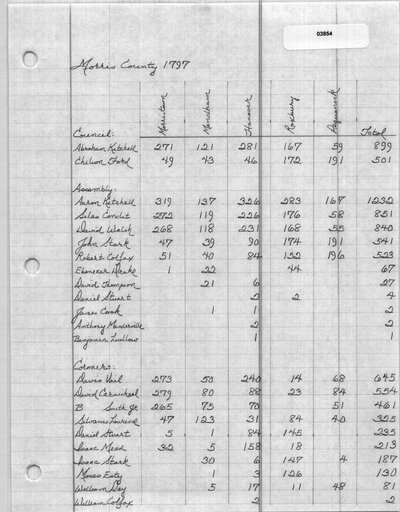 03884
Morris County 1797
Morristown Mendham Hanover Roxbury Pequanock
Council: Total
Abraham Kitchell 271 121 281 167 59 899
Chilion Ford 49 43 46 172 191 501
Assembly:
Aaron Kitchell 319 137 326 283 167 1232
Silas Condict 272 119 226 176 58 851
David Welsh 268 118 231 168 55 840
John Stark 47 39 90 174 191 541
Robert Colfax 51 40 84 152 196 523
Ebenezer Drake 1 22 44 67
David Thompson 21 6 27
Daniel Stuart 2 2 4
James Cook 1 1 2
Anthony 2 2
Benjamin Ludlow 1 1
Coroners:
Davis Vail 273 50 240 14 68 645
David 279 80 88 23 84 554
B Smith Jr 265 75 70 51 461
47 123 31 84 40 325
Daniel Stuart 5 1 84 145 235
Isaac Mead 32 5 158 18 213
Isaac Stark 30 6 147 4 187
Moses 1 3 126 130
William Day 5 17 11 48 81
William Colfax 2 2